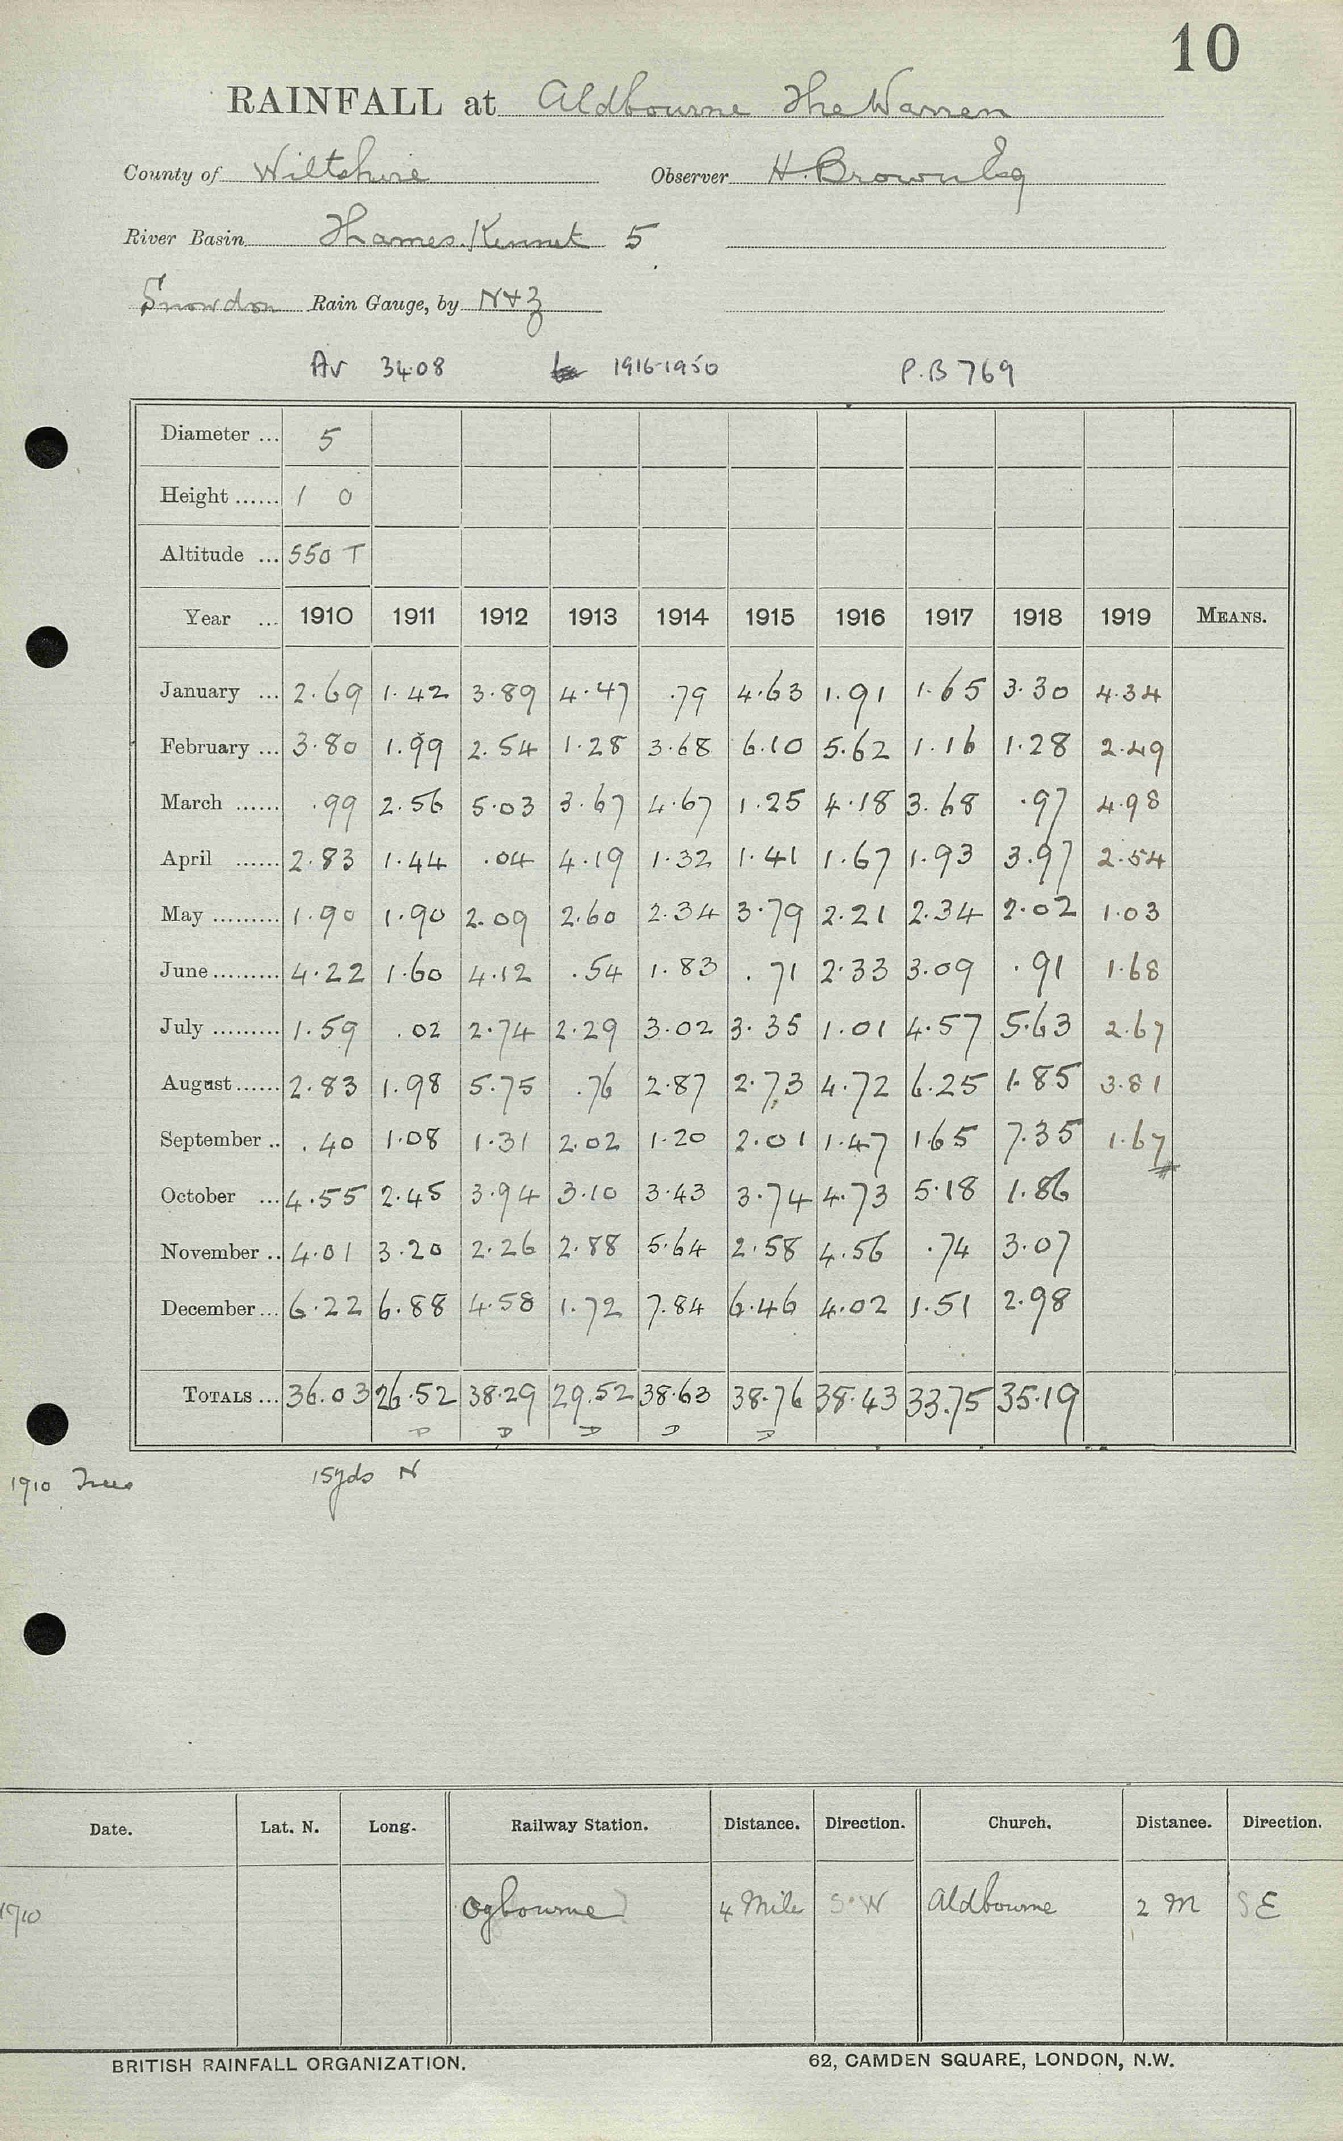 10
RAINFALL at Aldbourne The Warren
County of Wiltshire Observer H. Brown Esq
River Basin Thames. Kennet 5
Snowdon Rain Gauge, by N+Z
Av 3408 1916-1950 P.B 769
Diameter ... 5
Height ...... 1 0
Altitude ... 550 T
Year ... 1910 1911 1912 1913 1914 1915 1916 1917 1918 1919 MEANS.
January ... 2.69 1.42 3.89 4.47 .79 4.63 1.91 1.65 3.30 4.34
February ... 3.80 1.99 2.54 1.28 3.68 6.10 5.62 1.16 1.28 2.49
March ...... .99 2.56 5.03 3.67 4.67 1.25 4.18 3.68 .97 4.98
April ...... 2.83 1.44 .04 4.19 1.32 1.41 1.67 1.93 3.97 2.54
May ......... 1.90 1.90 2.09 2.60 2.34 3.79 2.21 2.34 2.02 1.03
June ......... 4.22 1.60 4.12 .54 1.83 .71 2.33 3.09 .91 1.68
July ......... 1.59 .02 2.74 2.29 3.02 3.35 1.01 4.57 5.63 2.67
August ...... 2.83 1.98 5.75 .76 2.87 2.73 4.72 6.25 1.85 3.81
September .. .40 1.08 1.31 2.02 1.20 2.01 1.47 1.65 7.35 1.67
October ... 4.55 2.45 3.94 3.10 3.43 3.74 4.73 5.18 1.86
November .. 4.01 3.20 2.26 2.88 5.64 2.58 4.56 .74 3.07
December ... 6.22 6.88 4.58 1.72 7.84 6.46 4.02 1.51 2.98
TOTALS ... 36.03 26.52 38.29 29.52 38.63 38.76 38.43 33.75 35.19
D D D D
1910 Trees 15yds N
Date. Lat. N. Long. Railway Station. Distance. Direction. Church. Distance. Direction.
1910 Ogbourne 4 Mile S.W Aldbourne 2 M SE
BRITISH RAINFALL ORGANIZATION. 62, CAMDEN SQUARE, LONDON, N.W.